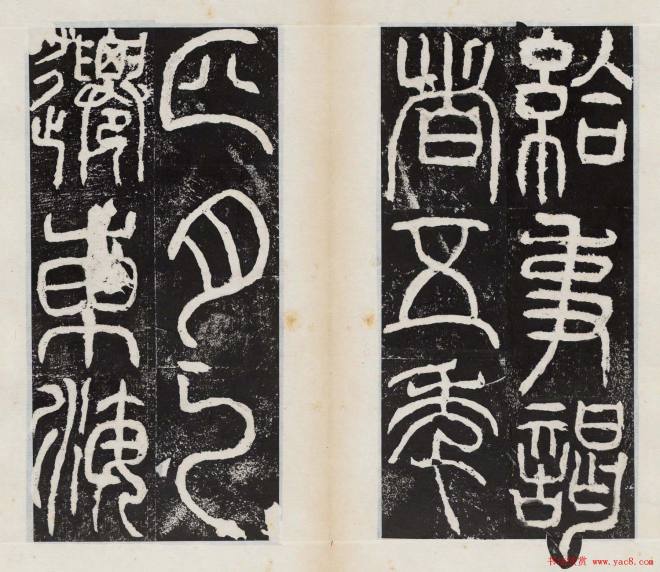 給事謁
者五年
四月乙
遷東海
书法欣赏 www.yac8.com